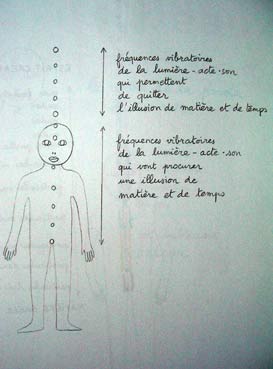 fréquences vibratoires
de la lumière-acte-son
qui permettent
de quitter
l'illusion de matière et de temps
fréquences vibratoires
de la lumière-acte-son
qui vont procurer
une illusion de
matière et de temps